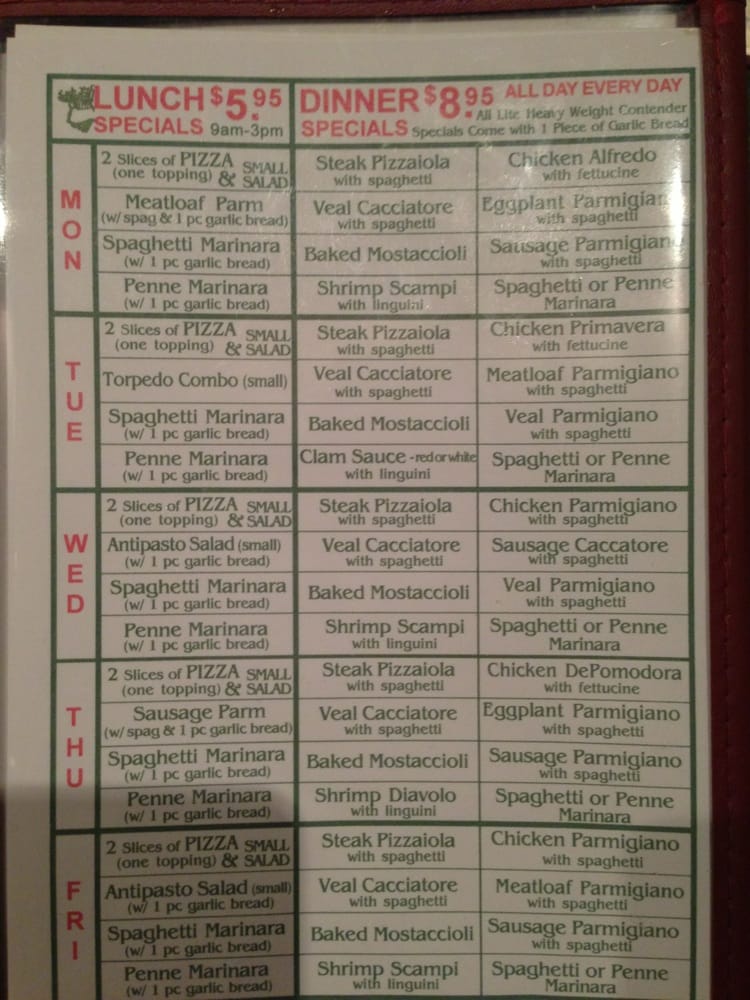 LUNCH $5.95
SPECIALS 9am-3pm
DINNER $8.95 ALL DAY EVERY DAY
All Lite Heavy Weight Contender
SPECIALS Specials Come with 1 Piece of Garlic Bread
MON
2 Slices of PIZZA SMALL
(one topping) & SALAD
Steak Pizzaiola
with spaghetti
Chicken Alfredo
with fettucine
Meatloaf Parm
(w/ spag & 1 pc garlic bread)
Veal Cacciatore
with spaghetti
Eggplant Parmigian
with spaghetti
Spaghetti Marinara
(w/ 1 pc garlic bread)
Baked Mostaccioli
Sausage Parmigian
with spaghetti
Penne Marinara
(w/ 1 pc garlic bread)
Shrimp Scampi
with linguini
Spaghetti or Penne
Marinara
TUE
2 Slices of PIZZA SMALL
(one topping) & SALAD
Steak Pizzaiola
with spaghetti
Chicken Primavera
with fettucine
Torpedo Combo (small)
Veal Cacciatore
with spaghetti
Meatloaf Parmigiano
with spaghetti
Spaghetti Marinara
(w/ 1 pc garlic bread)
Baked Mostaccioli
Veal Parmigiano
with spaghetti
Penne Marinara
(w/ 1 pc garlic bread)
Clam Sauce - red or white
with linguini
Spaghetti or Penne
Marinara
WED
2 Slices of PIZZA SMALL
(one topping) & SALAD
Steak Pizzaiola
with spaghetti
Chicken Parmigiano
with spaghetti
Antipasto Salad (small)
(w/ 1 pc garlic bread)
Veal Cacciatore
with spaghetti
Sausage Caccatore
with spaghetti
Spaghetti Marinara
(w/ 1 pc garlic bread)
Baked Mostaccioli
Veal Parmigiano
with spaghetti
Penne Marinara
(w/ 1 pc garlic bread)
Shrimp Scampi
with linguini
Spaghetti or Penne
Marinara
THU
2 Slices of PIZZA SMALL
(one topping) & SALAD
Steak Pizzaiola
with spaghetti
Chicken DePomodora
with fettucine
Sausage Parm
(w/ spag & 1 pc garlic bread)
Veal Cacciatore
with spaghetti
Eggplant Parmigiano
with spaghetti
Spaghetti Marinara
(w/ 1 pc garlic bread)
Baked Mostaccioli
Sausage Parmigiano
with spaghetti
Penne Marinara
(w/ 1 pc garlic bread)
Shrimp Diavolo
with linguini
Spaghetti or Penne
Marinara
FRI
2 Slices of PIZZA SMALL
(one topping) & SALAD
Steak Pizzaiola
with spaghetti
Chicken Parmigiano
with spaghetti
Antipasto Salad (small)
(w/ 1 pc garlic bread)
Veal Cacciatore
with spaghetti
Meatloaf Parmigiano
with spaghetti
Spaghetti Marinara
(w/ 1 pc garlic bread)
Baked Mostaccioli
Sausage Parmigiano
with spaghetti
Penne Marinara
(w/ 1 pc garlic bread)
Shrimp Scampi
with linguini
Spaghetti or Penne
Marinara